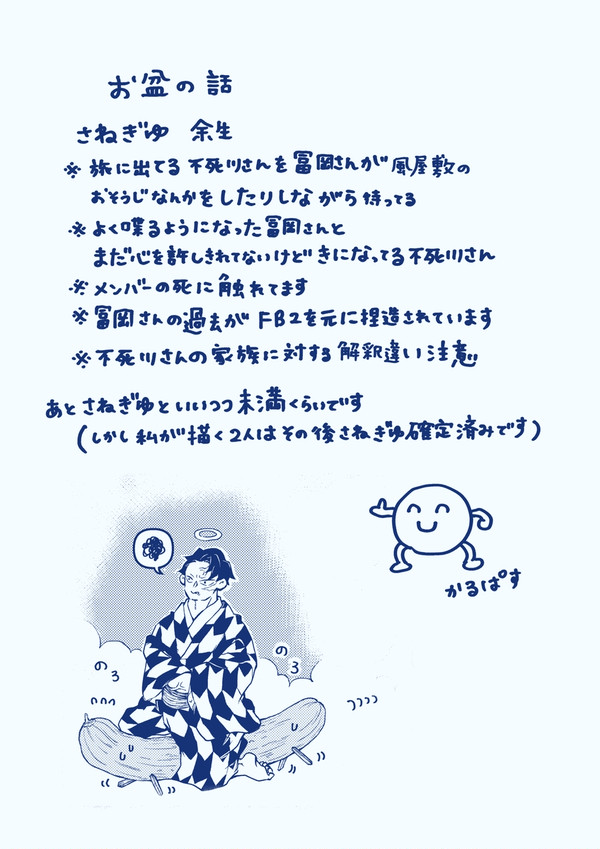 お盆の話
さねぎゆ 余生
※ 旅に出てる不死川さんを冨岡さんが風屋敷の
おそうじなんかをしたりしながら待ってる
※ よく喋るようになった冨岡さんと
まだ心を許しきれてないけどきになってる不死川さん
※ メンバーの死に触れてます
※ 冨岡さんの過去がFB2を元に捏造されています
※ 不死川さんの家族に対する解釈違い注意
あとさねぎゆといいつつ未満くらいです
(しかし私が描く2人はその後さねぎゆ確定済みです)
かるぱす
のろ
のろ